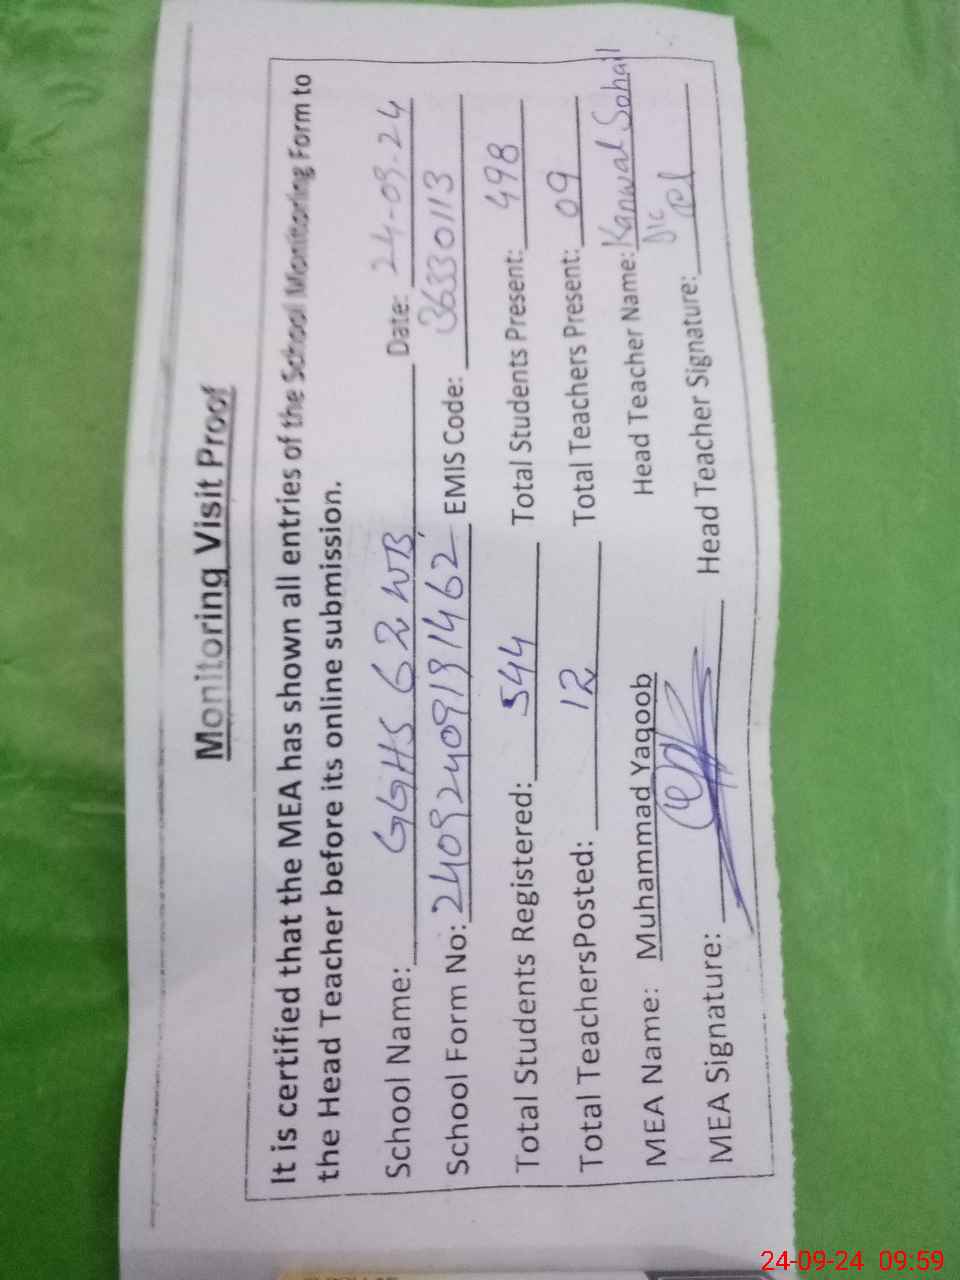 Monitoring Visit Proof
It is certified that the MEA has shown all entries of the School Monitoring Form to
the Head Teacher before its online submission.
School Name: GGHS 62 WB Date: 24-09-24
School Form No: 24092409191462 EMIS Code: 36330113
Total Students Registered: 544 Total Students Present: 498
Total TeachersPosted: 12 Total Teachers Present: 09
MEA Name: Muhammad Yaqoob Head Teacher Name: Kanwal Sohail
MEA Signature: Head Teacher Signature:
24-09-24 09:59